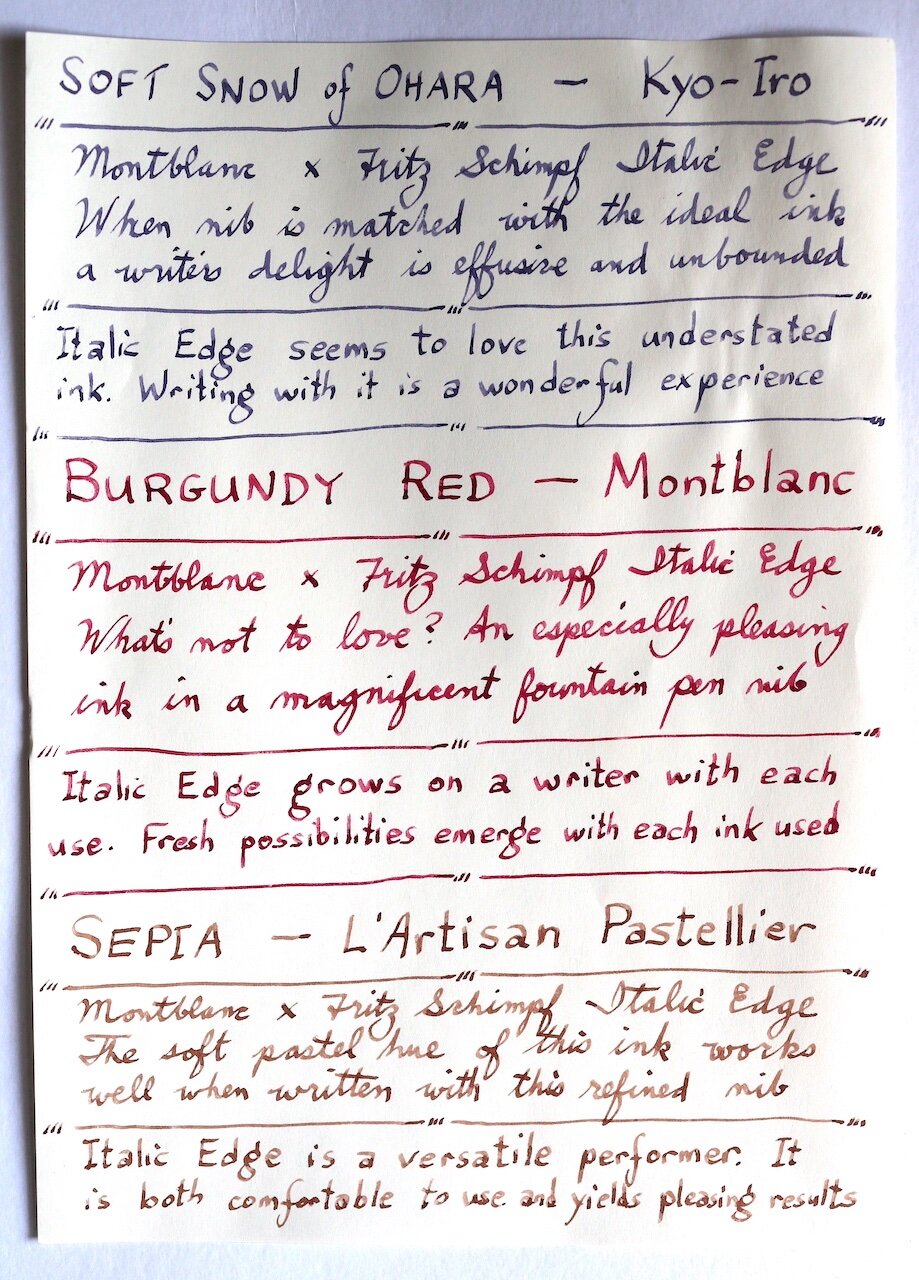 SOFT SNOW of OHARA – Kyo-Iro
Montblanc x Fritz Schimpf Italic Edge
When nib is matched with the ideal ink
a writer's delight is effusive and unbounded
Italic Edge seems to love this understated
ink. Writing with it is a wonderful experience
BURGUNDY RED – Montblanc
Montblanc x Fritz Schimpf Italic Edge
What's not to love? An especially pleasing
ink in a magnificent fountain pen nib
Italic Edge grows on a writer with each
use. Fresh possibilities emerge with each ink used
SEPIA – L'Artisan Pastellier
Montblanc x Fritz Schimpf Italic Edge
The soft pastel hue of this ink works
well when written with this refined nib
Italic Edge is a versatile performer. It
is both comfortable to use and yields pleasing results